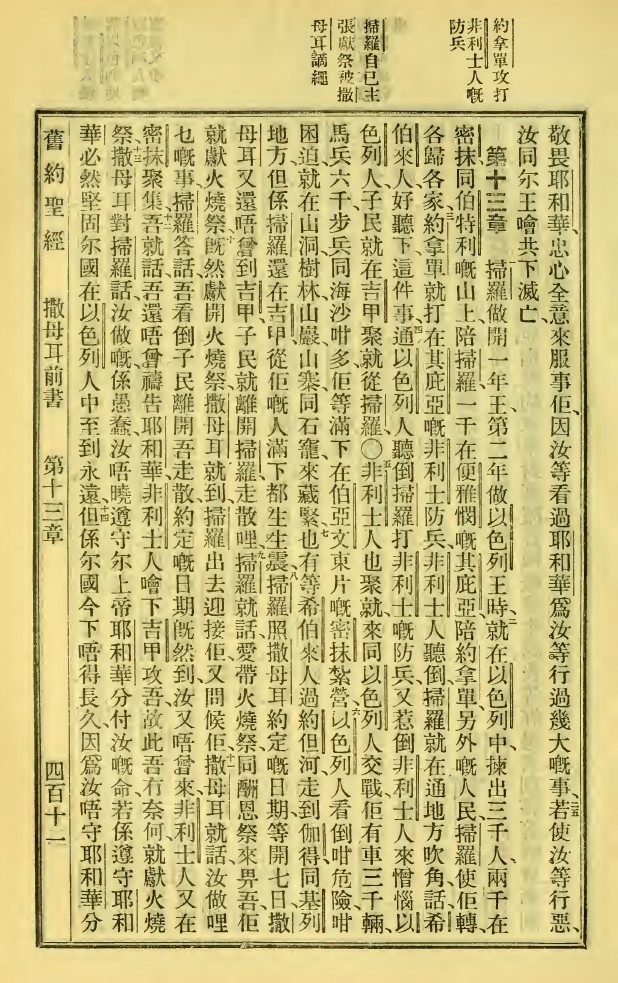 約拿單攻打
非利士人嘅
防兵
掃羅自已主
張獻祭被撒
母耳謫繩
敬畏耶和華、忠心全意來服事佢、因汝等看過耶和華爲汝等行過幾大嘅事、二五若使汝等行惡、
汝同尔王噲共下滅亡、
第十三章 一掃羅做開一年王、第二年做以色列王時、二就在以色列中揀出三千人、兩千在
密抹同伯特利嘅山上、陪掃羅、一千在便雅憫嘅其庇亞、陪約拿單、另外嘅人民、掃羅使佢轉、
各歸各家、三約拿單就打在其庇亞嘅非利士防兵、非利士人聽倒、掃羅就在通地方吹角、話、希
伯來人、好聽下這件事、四通以色列人聽倒掃羅打非利士嘅防兵、又惹倒非利士人來憎惱以
色列人、子民就在吉甲聚就從掃羅、〇五非利士人也聚就來同以色列人交戰、佢有車三千輛、
馬兵六千、步兵同海沙咁多、佢等滿下在伯亞文東片嘅密抹紮營、六以色列人看倒咁危險咁
困迫、就在山洞樹林山巖山寨同石竉來藏緊、七也有等希伯來人過約但河、走到伽得同基列
地方、但係掃羅還在吉甲、從佢嘅人滿下都生生震、八掃羅照撒母耳約定嘅日期、等開七日、撒
母耳又還唔曾到吉甲、子民就離開掃羅走散哩、九掃羅就話、愛帶火燒祭、同酬恩祭來畀吾、佢
就獻火燒祭、十旣然獻開火燒祭、撒母耳就到、掃羅出去迎接佢、又問候佢、十一撒母耳就話、汝做哩
乜嘅事、掃羅答話、吾看倒子民離開吾走散、約定嘅日期旣然到、汝又唔曾來、非利士人又在
密抹聚集、十二吾就話、吾還唔曾禱告耶和華、非利士人噲下吉甲攻吾、故此吾冇奈何就獻火燒
祭、十三撒母耳對掃羅話、汝做嘅係愚蠢、汝唔曉遵守尔上帝耶和華分付汝嘅命、若係遵守、耶和
華必然堅固尔國在以色列人中至到永遠、十四但係尔國今下唔得長久、因爲汝唔守耶和華分
舊約聖經 撒母耳前書 第十三章 四百十一